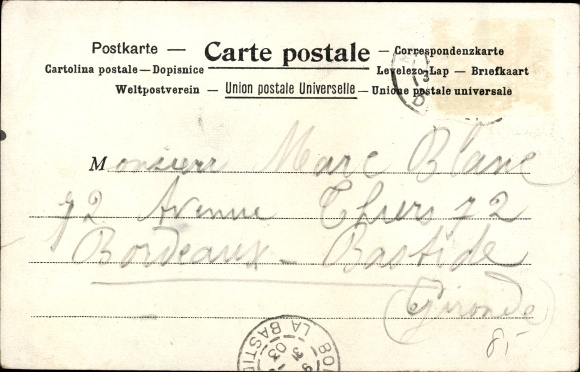 Postkarte — Carte postale — Correspondenzkarte
Cartolina postale — Dopisnice Levelezo-Lap — Briefkaart
Weltpostverein — Union postale Universelle — Unione postale universale
Monsieur Marc Blanc
72 Avenue Thiers 72
Bordeaux - Bastide
(Gironde)
85
LA BASTID
03
13
D